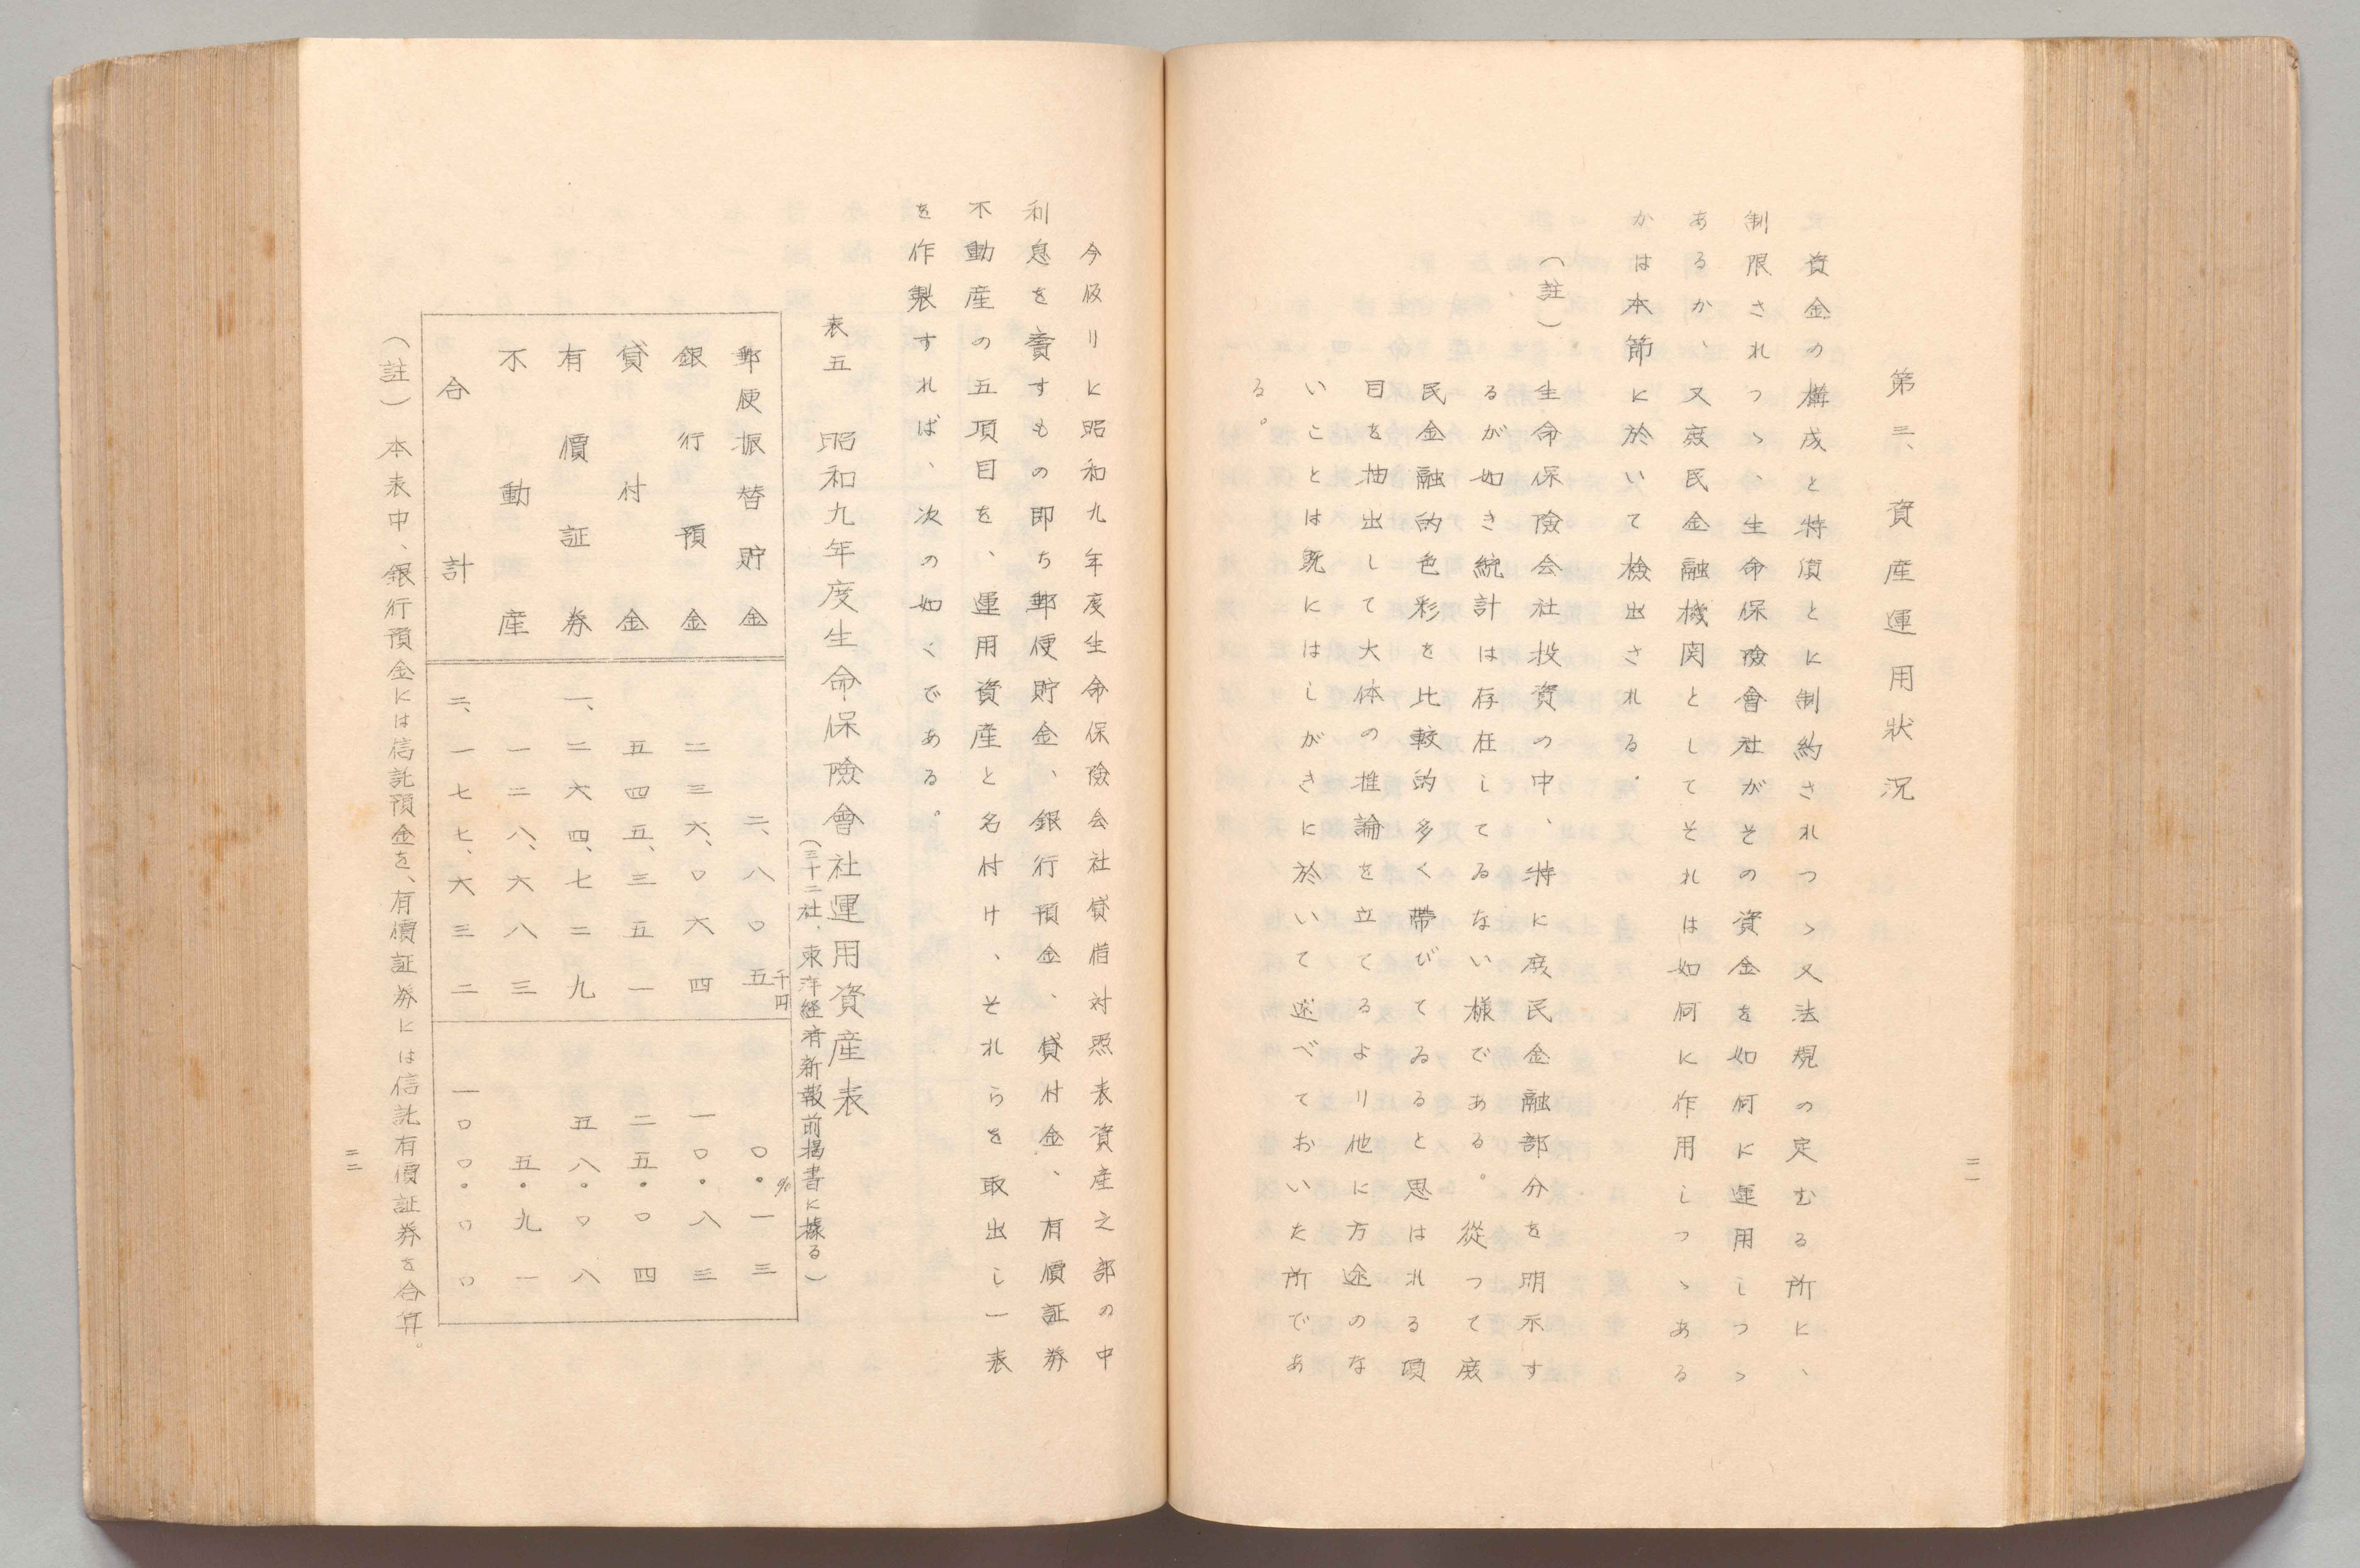 二一
第三、資産運用狀況
資金の構成と特質とに制約されつゝ又法規の定むる所に、
制限されつゝ、生命保險會社がその資金を如何に運用しつゝ
あるか、又庶民金融機関としてそれは如何に作用しつゝある
かは本節に於いて檢出される.
（註）．生命保險会社投資の中、特に庶民金融部分を明示す
るが如き統計は存在してゐない様である。從つて庶
民金融的色彩を比較的多く帶びてゐると思はれる項
目を抽出して大体の推論を立てるより他に方途のな
いことは既にはしがきに於いて述べておいた所であ
る。
今仮リに昭和九年度生命保險会社貸借対照表資産之部の中
利息を齎すもの即ち郵便貯金、銀行預金、貸付金、有價証券
不動産の五項目を、運用資産と名付け、それらを取出し一表
を作製すれば、次の如くである。
表五　昭和九年度生命保險會社運用資産表
（三十二社、東洋経済新報前揭書に據る）
郵便振替貯金　二、八〇五千円　〇・一三%
銀行預金　二三六、〇六四　一〇・八三
貸付金　五四五、三五一　二五・〇四
有價証券　一、二六四、七二九　五八・〇八
不動産　一二八、六八三　五・九一
合計　二、一七七、六三二　一〇〇・〇〇
（註）本表中、銀行預金には信託預金を、有價証券には信託有價証券を合算。
二二